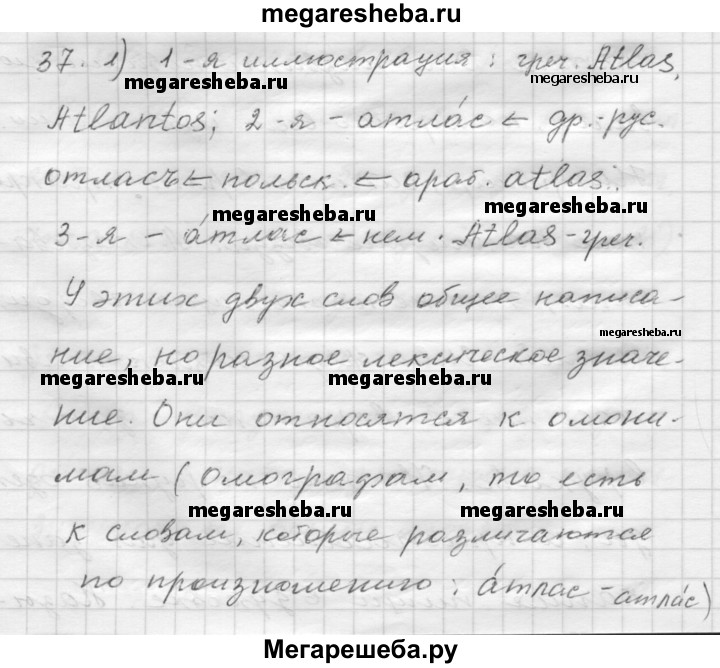 megaresheba.ru
37. 1) 1-я иллюстрация: греч. Atlas,
megaresheba.ru
megaresheba.ru
Atlantos; 2-я - атла́с ← др.-рус.
отласъ ← польск. ← араб. atlas;
megaresheba.ru
megaresheba.ru
3-я - а́тлас ← нем. Atlas - греч.
У этих двух слов общее написа-
megaresheba.ru
ние, но разное лексическое значе-
megaresheba.ru
megaresheba.ru
ние. Они относятся к омони-
мам (омографам, то есть
megaresheba.ru
megaresheba.ru
к словам, которые различаются
по произношению: а́тлас - атла́с)
Мегарешеба.ру